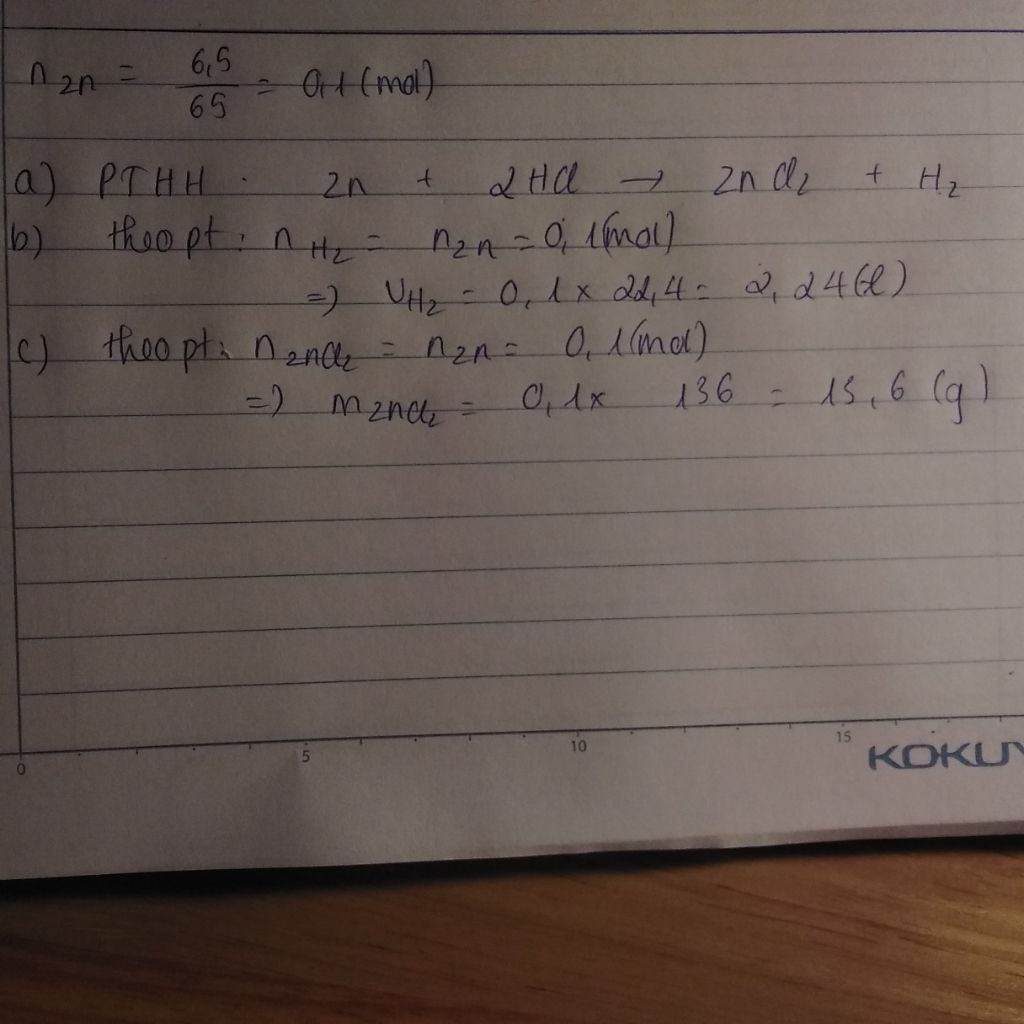 n Zn = 6,5/65 = 0,1 (mol)
a) PTHH : Zn + 2HCl → ZnCl₂ + H₂
b) theo pt : n H₂ = n Zn = 0,1 (mol)
=> VH₂ = 0,1 x 22,4 = 2,24 (l)
c) theo pt : n ZnCl₂ = n Zn = 0,1 (mol)
=> m ZnCl₂ = 0,1 x 136 = 13,6 (g)
0 5 10 15